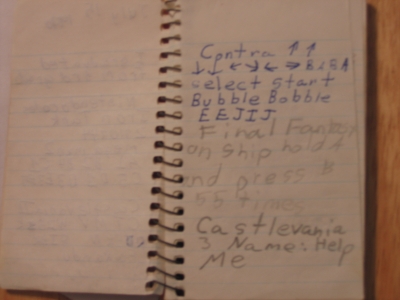 Contra ↑↑
↓↓ ← → ← → B A B A
select start
Bubble Bobble
EEJIJ
Final Fantasy
on ship hold A
and press B
55 times
Castlevania
3 Name: Help
Me